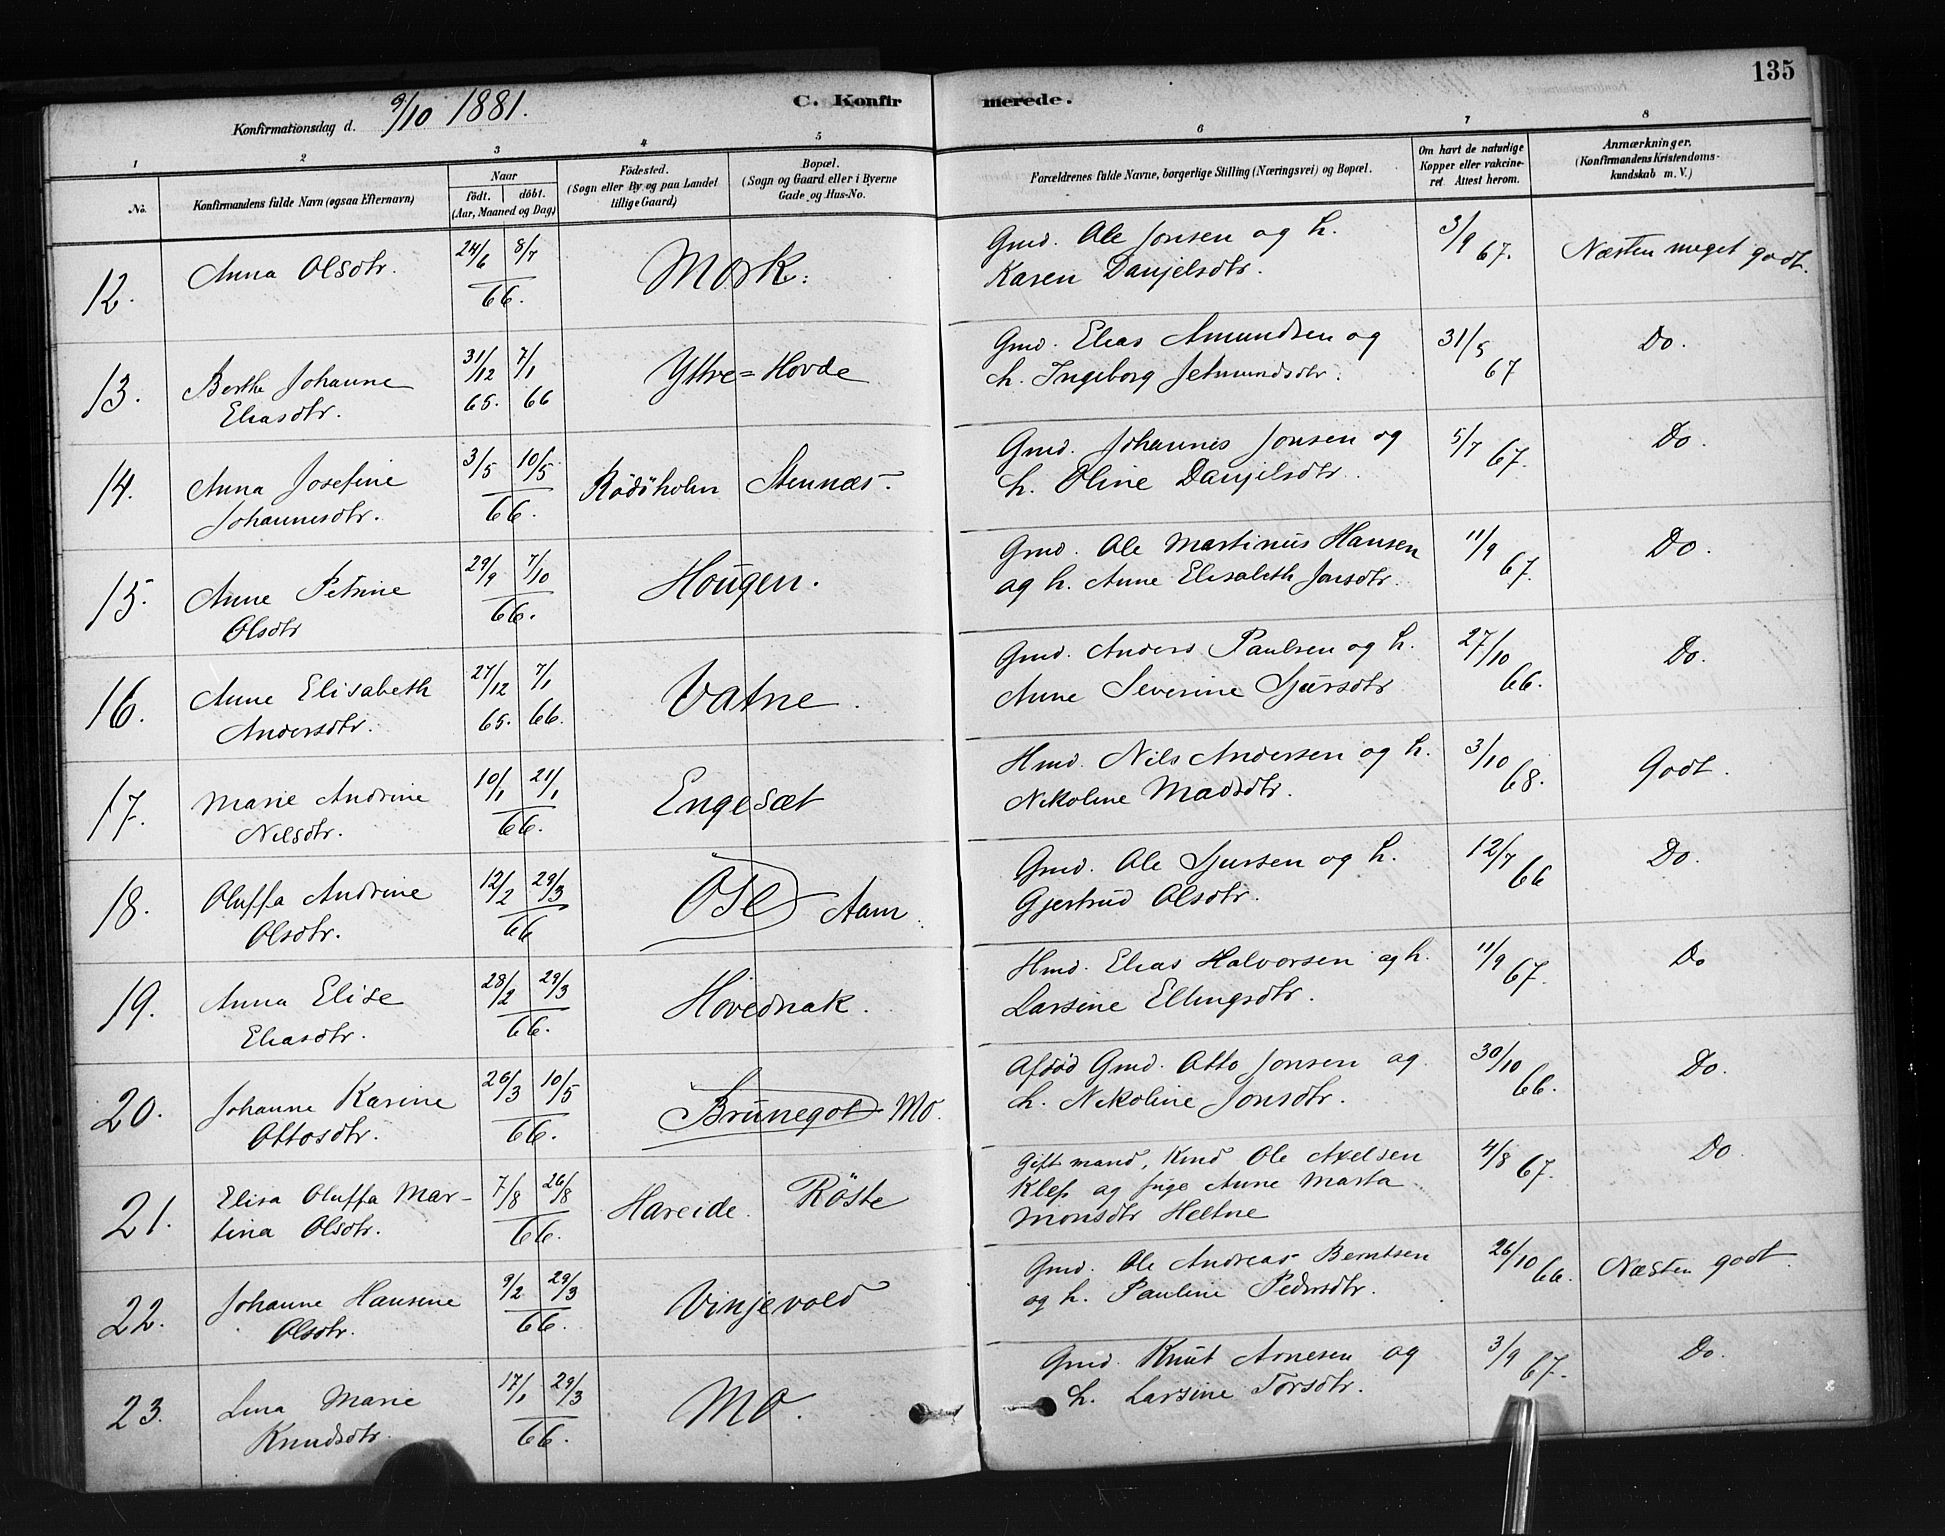 135
Konfirmationsdag d. 9/10 1881.
C. Konfirmerede.
1 2 3 4 5 6 7 8
No.
Konfirmandens fulde Navn (ogsaa Efternavn)
Naar
födt. döbt.
(Aar, Maaned og Dag)
Födested.
(Sogn eller By og paa Landet
tillige Gaard)
Bopæl.
(Sogn og Gaard eller i Byerne
Gade og Hus-No.
Forældrenes fulde Navne, borgerlige Stilling (Næringsvei) og Bopæl.
Om havt de naturlige
Kopper eller vakcine-
ret. Attest herom.
Anmærkninger.
(Konfirmandens Kristendoms-
kundskab m. V.)
12. Anna Olsdtr. 24/6 8/7 66. Mork. Gmd. Ole Jonsen og h. 3/9 67. Næsten meget godt.
Karen Danjelsdtr.
13. Berthe Johanne 31/12 65. 7/1 66 Yttre=Hovde Gmd. Elias Amundsen og 31/5 67 Do.
Eliasdtr. h. Ingeborg Jetmundsdtr.
14. Anna Josefine 3/5 10/5 66. Rödöholm Stennæs. Gmd. Johannes Jonsen og 5/7 67. Do.
Johannesdtr. h. Oline Danjelsdtr.
15. Anne Petrine 29/9 7/10 66. Hougen. Gmd. Ole Martinus Hansen 11/9 67. Do.
Olsdtr og h. Anne Elisabeth Jonsdtr.
16. Anne Elisabeth 27/12 65. 7/1 66. Vatne. Gmd. Anders Paulsen og h. 27/10 66. Do.
Andersdtr. Anne Severine Sjursdtr
17. Marie Andrine 10/1 21/1 66. Engesæt Hmd. Nils Andersen og h. 3/10 68. Godt.
Nilsdtr. Nikoline Madsdtr.
18. Oluffa Andrine 12/2 29/3 66 Ose Aam. Gmd. Ole Sjursen og h. 12/7 66 Do.
Olsdtr. Gjertrud Olsdtr.
19. Anna Elise 28/2 29/3 66. Hovednak. Hmd. Elias Halvorsen og h. 11/9 67. Do
Eliasdtr. Larsine Ellingsdtr.
20. Johanne Karine 26/3 10/5 66. Brunegot Mo. Afdöd Gmd. Otto Jonsen og 30/10 66. Do.
Ottosdtr. h. Nikoline Jonsdtr.
21. Elisa Oluffa Mar- 7/8 26/8 66. Hareide. Röste Gift mand, Kmd Ole Axelsen 4/8 67. Do
tina Olsdtr. Klep og pige Anne Marta
Monsdtr Heltne
22. Johanne Hansine 9/2 29/3 66. Vinjevold Gmd. Ole Andreas Berntsen 26/10 66. Næsten godt.
Olsdtr. og h. Pauline Pedersdtr.
23. Lina Marie 17/1 29/3 66. Mo. Gmd. Knut Arnesen og 3/9 67. Do.
Knudsdtr. h. Larsine Torsdtr.